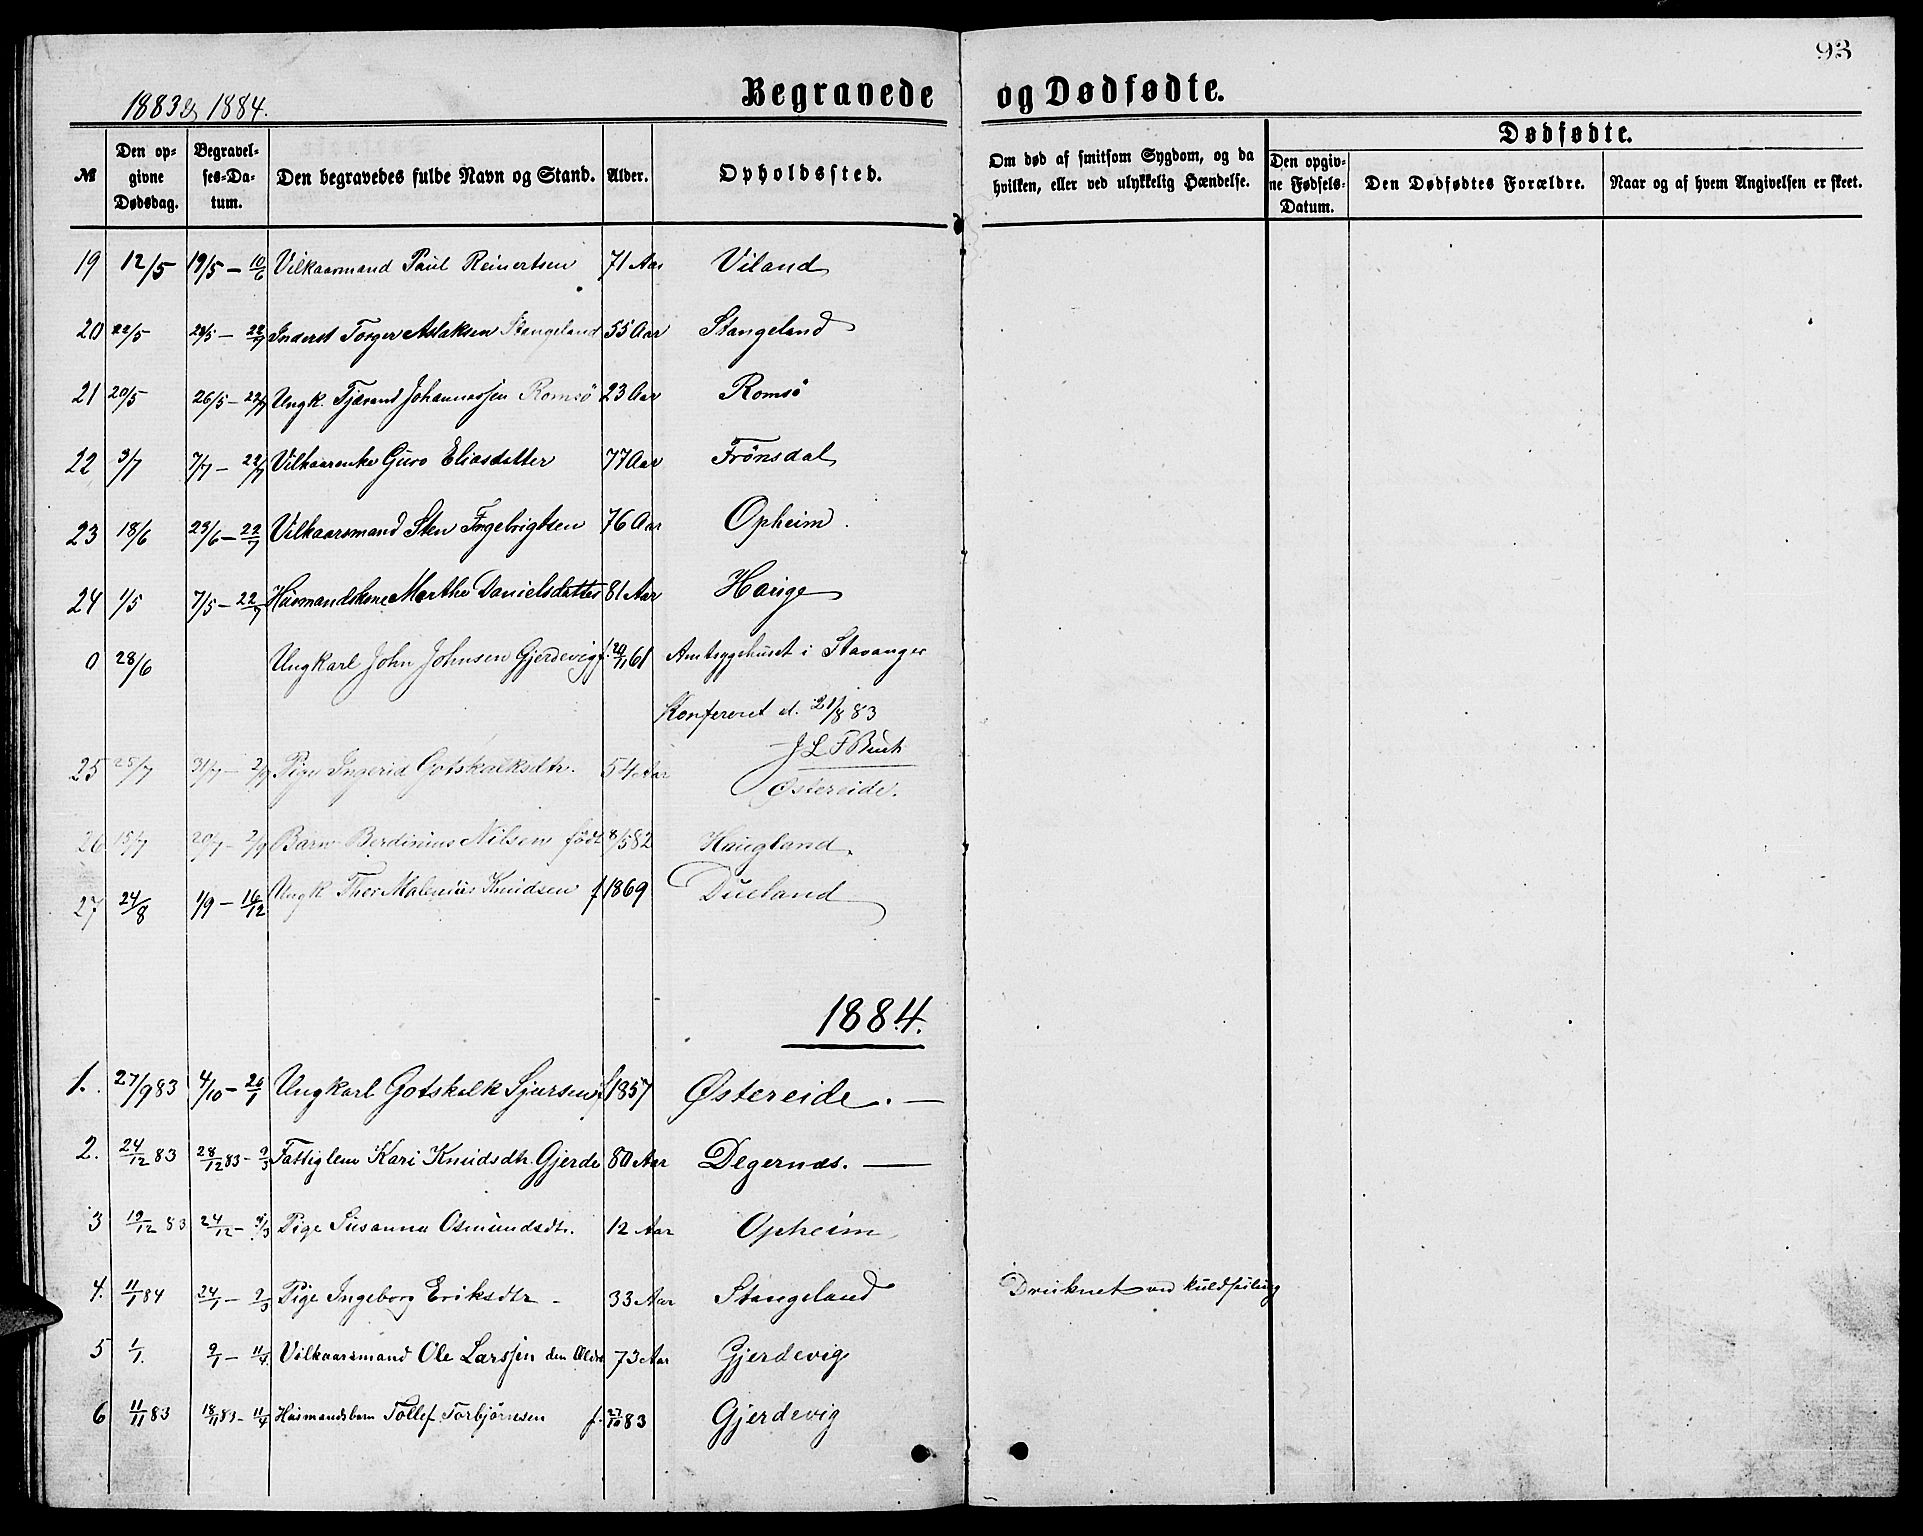 93
1883 & 1884.
Begravede og Dødfødte.
№ Den opgivne Dødsdag. Begravelses-Datum. Den begravedes fulde Navn og Stand. Alder. Opholdssted. Om død af smitsom Sygdom, og da hvilken, eller ved ulykkelig Hændelse. Dødfødte. Den opgivne Fødsels-Datum. Den Dødfødtes Forældre. Naar og af hvem Angivelsen er skeet.
19 12/5 19/5 – 10/6 Vilkaarmand Paul Reinertsen 71 Aar Viland
20 22/5 – 22/7 Inderst Torger Aslaksen Stangeland 55 Aar Stangeland
21 20/5 26/5 – 22/7 Ungk. Tjærand Johannessen Romsö 23 Aar Romsö
22 3/7 7/7 – 22/7 Vilkaarenke Guro Eliasdatter 77 Aar Frönsdal
23 18/6 23/6 – 22/7 Vilkaarsmand Sten Ingebrigtsen 76 Aar Opheim
24 1/5 7/5 – 22/7 Husmandskone Marthe Danielsdatter 81 Aar Hauge
0 28/6 Ungkarl John Johnsen Gjerdevig f. 61 Amtsygehuset i Stavanger
Konfereret d. 21/8 83
25 25/7 31/7 – 2/9 Pige Ingerid Gotskalksdtr. 54 Aar Østereide.
26 15/7 20/7 – 2/9 Barn Berdinius Nilsen født 8/5 82 Haugland
27 24/8 1/9 – 16/12 Ungk Thor Malenius Knudsen f 1869 Dueland
1884.
1. 27/9 83 4/10 – 20/1 Ungkarl Gotskalk Sjursen f 1857 Østereide. —
2. 24/12 83 28/12 83 – 9/3 Fattiglem Kari Knudsdtr. Gjerde 80 Aar Degernæs. —
3 19/12 83 24/12 – 9/3 Pige Susanna Osmundsdtr. 12 Aar Opheim
4. 11/1 84 24/1 – 9/3 Pige Ingeborg Eriksdtr – 33 Aar Stangeland Druknet ved Kuldseiling
5 1/1. 9/1 – 11/4 Vilkaarsmand Ole Larssen den Ældre 73 Aar Gjerdevig
6 11/11 83 18/11 83 – 11/4 Husmandsbarn Tollef Torbjörnsen f. 27/10 83 Gjerdevig